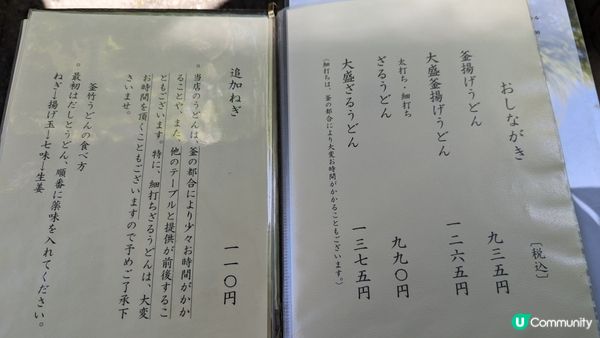 おしながき
〔税込〕
釜揚げうどん 九三五円
大盛釜揚げうどん 一二六五円
太打ち・細打ち
ざるうどん 九九〇円
大盛ざるうどん 一三七五円
（細打ちは、釜の都合により大変お時間がかかることもございます。）
追加ねぎ 一一〇円
。当店のうどんは、釜の都合により少々お時間がかか
ることや、また、他のテーブルと提供が前後するこ
ともございます。特に、細打ちざるうどんは、大変
お時間を頂くこともございますので予めご了承下
さいませ。
釜竹うどんの食べ方
。最初はだしとうどん、順番に薬味を入れてください。
ねぎ→揚げ玉→七味→生姜
U Community